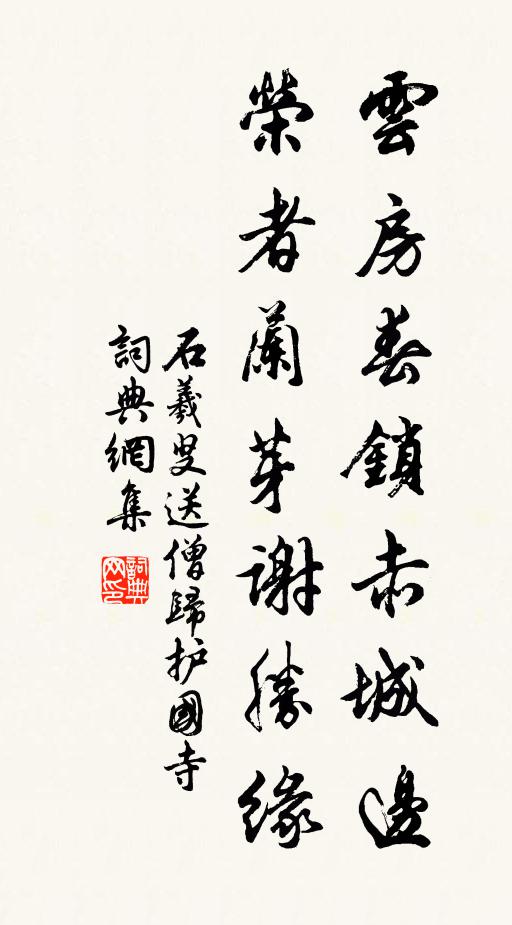 雲房春鎖赤城邊
榮者蘭芽謝勝緣
石羲叟送僧歸护國寺
詞典網集
詞典网印